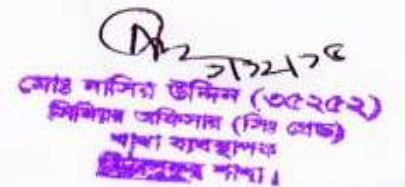 মোঃ নাসির উদ্দিন (৩৫২৫২)
সিনিয়র অফিসার (সিঃ গ্রেড)
শাখা ব্যবস্থাপক
শাখা।